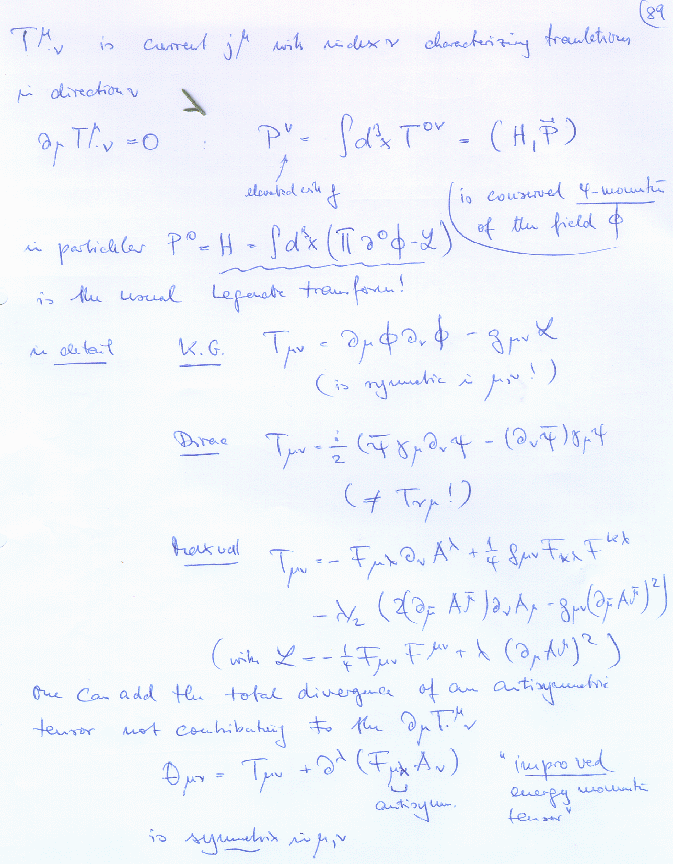 89
T^μ_ν is current j^μ with index ν characterizing translations
in direction ν
∂_μ T^μ_ν = 0 : P^ν = ∫d³x T^{0ν} = (H, P⃗)
elevated with g
is conserved 4-momentum
of the field ϕ
in particular P⁰ = H = ∫d³x (Π ∂⁰ϕ - ℒ)
is the usual Legendre transform!
in detail K.G. T_{μν} = ∂_μ ϕ ∂_ν ϕ - g_{μν} ℒ
(is symmetric in μ,ν !)
Dirac T_{μν} = i/2 (ψ̄ γ_μ ∂_ν ψ - (∂_ν ψ̄) γ_μ ψ
(≠ T_{νμ} !)
Maxwell T_{μν} = - F_{μλ} ∂_ν A^λ + 1/4 g_{μν} F_{κλ} F^{κλ}
- λ/2 (2(∂_ρ̄ A^ρ̄) ∂_ν A_μ - g_{μν} (∂_ρ̄ A^ρ̄)²)
(with ℒ = - 1/4 F_{μν} F^{μν} + λ (∂_μ A^μ)²)
One can add the total divergence of an antisymmetric
tensor not contributing to the ∂_μ T^μ_ν
Θ_{μν} = T_{μν} + ∂^λ (F_{μλ} · A_ν) "improved
antisym. energy momentum
tensor"
is symmetric in μ,ν